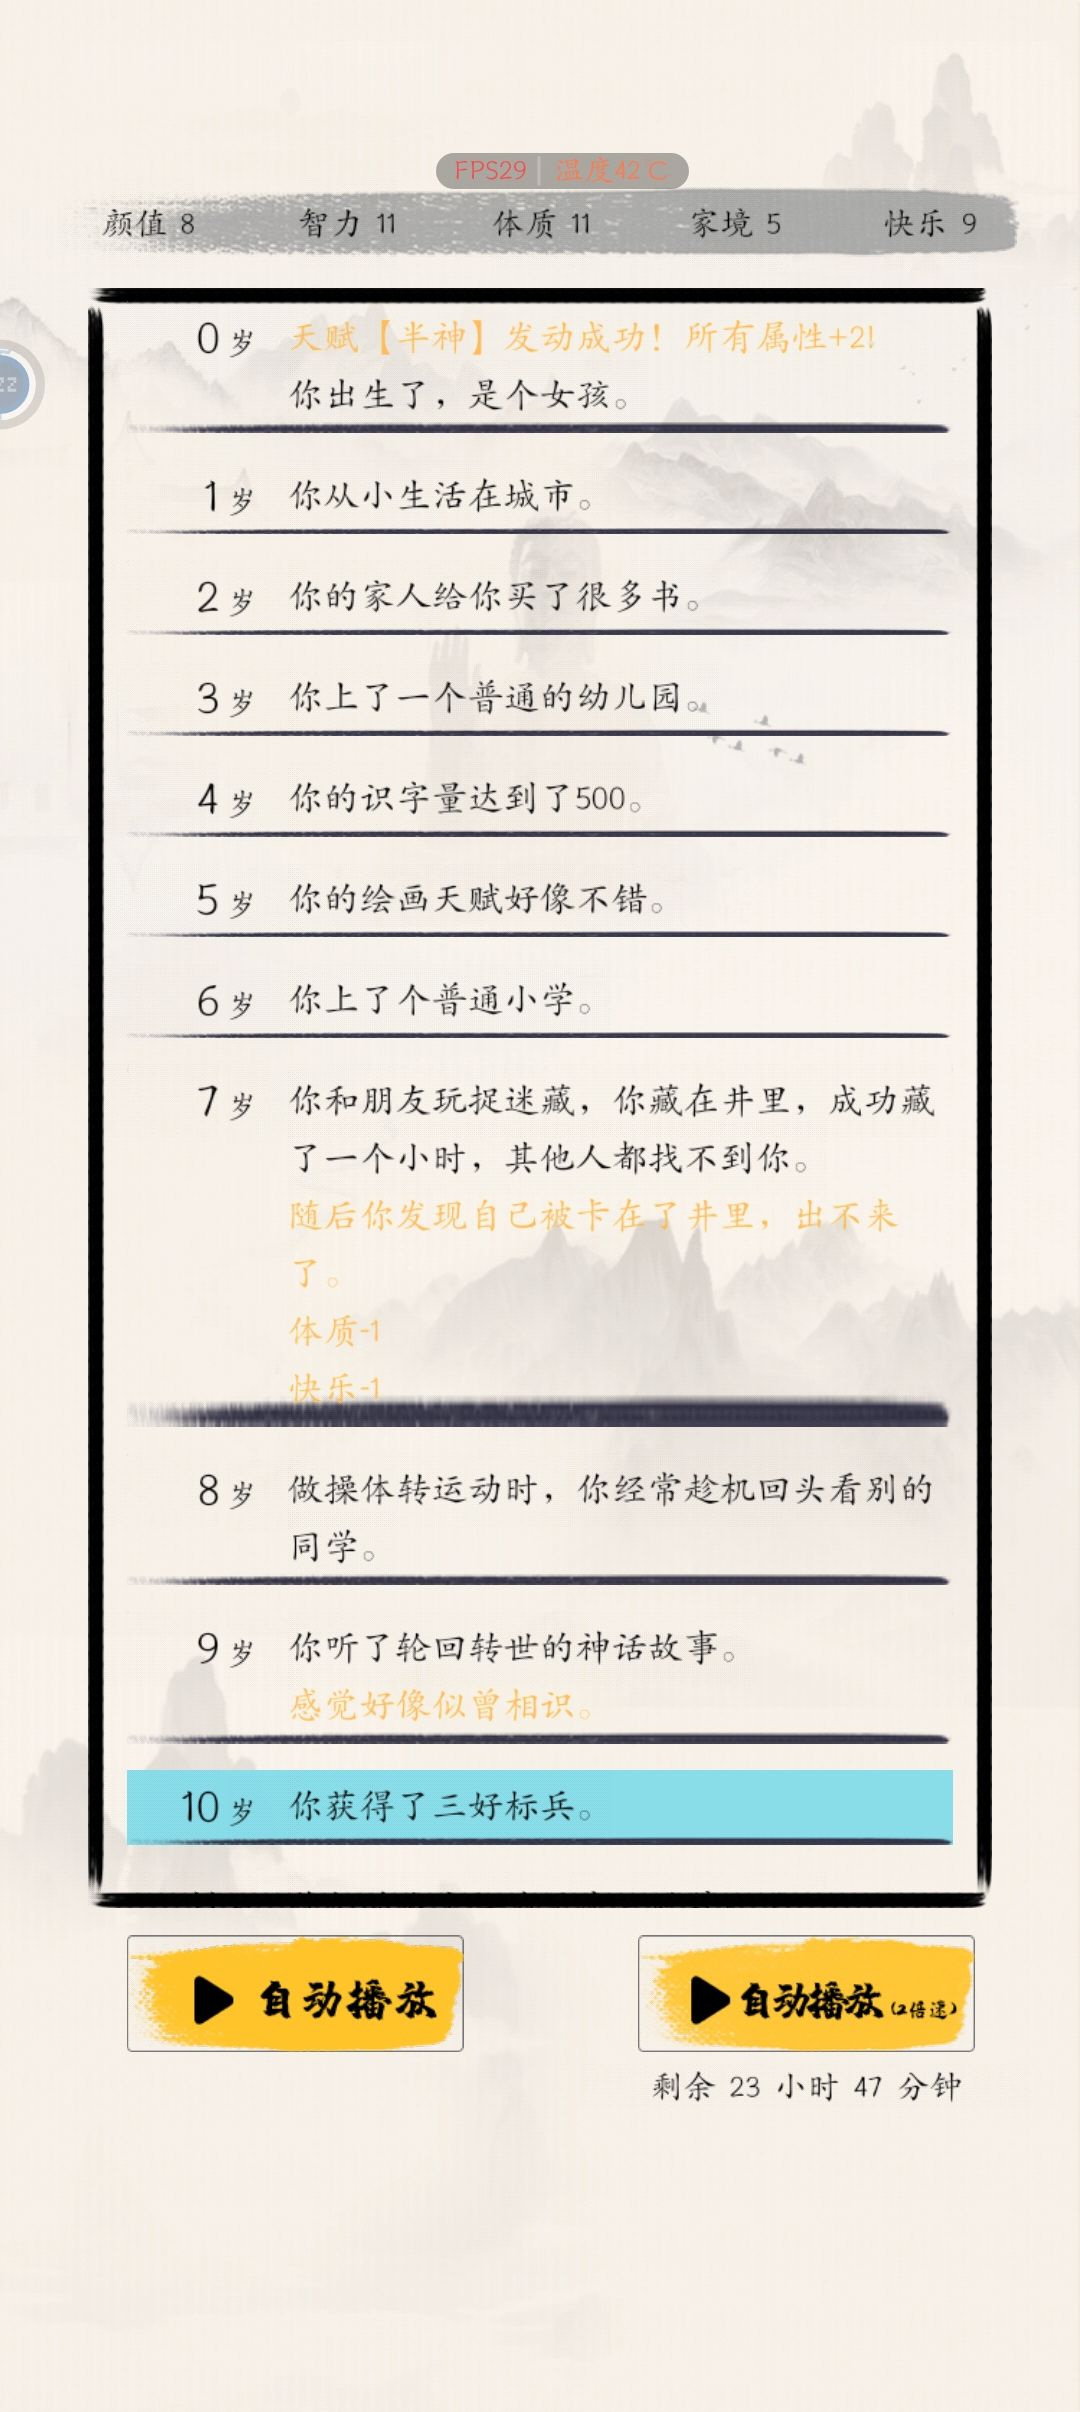 FPS29 温度42℃
颜值 8 智力 11 体质 11 家境 5 快乐 9
0岁 天赋【半神】发动成功！所有属性+2!
你出生了，是个女孩。
1岁 你从小生活在城市。
2岁 你的家人给你买了很多书。
3岁 你上了一个普通的幼儿园。
4岁 你的识字量达到了500。
5岁 你的绘画天赋好像不错。
6岁 你上了个普通小学。
7岁 你和朋友玩捉迷藏，你藏在井里，成功藏
了一个小时，其他人都找不到你。
随后你发现自己被卡在了井里，出不来
了。
体质-1
快乐-1
8岁 做操体转运动时，你经常趁机回头看别的
同学。
9岁 你听了轮回转世的神话故事。
感觉好像似曾相识。
10岁 你获得了三好标兵。
自动播放 自动播放(2倍速)
剩余 23 小时 47 分钟